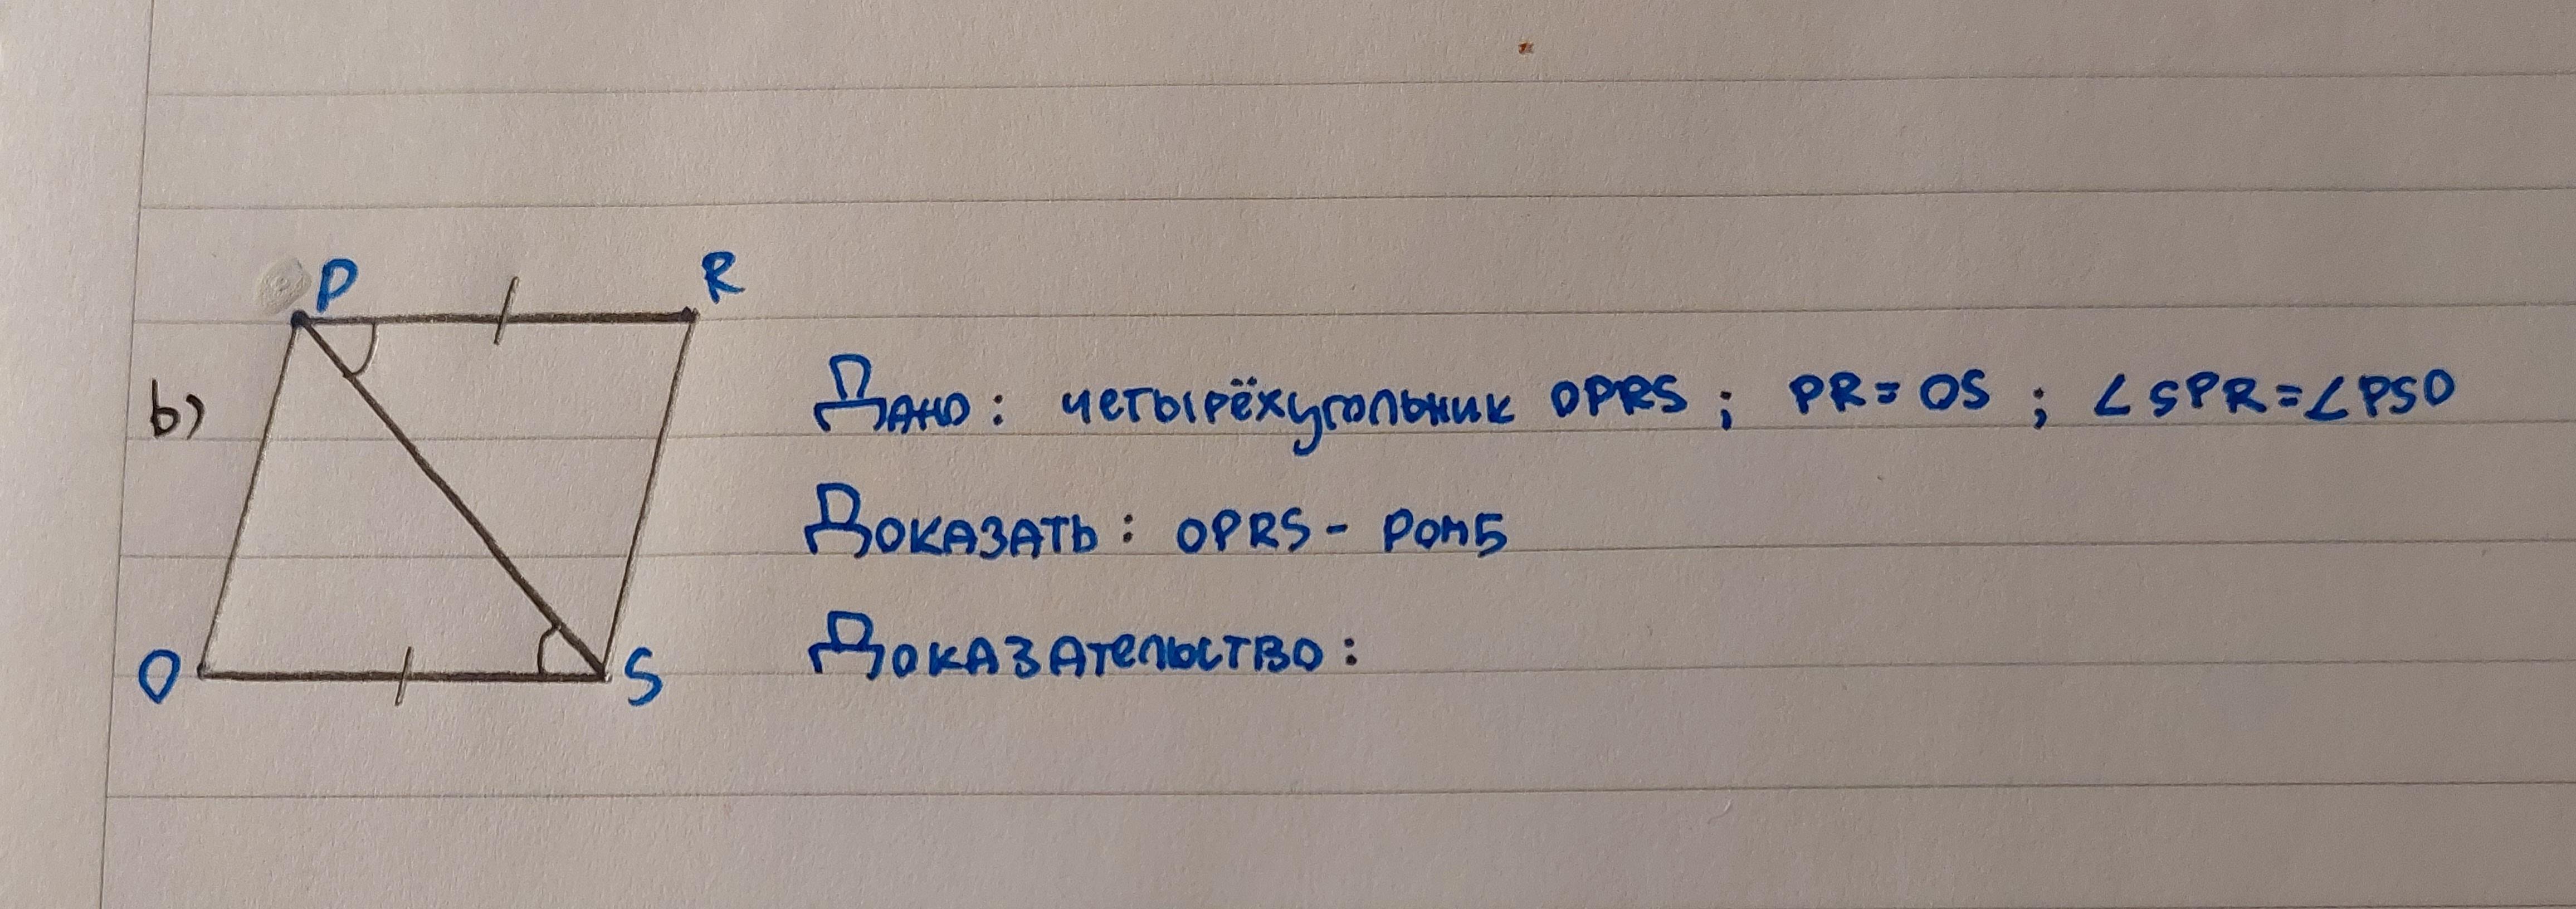 P
R
b)
Дано: четырёхугольник OPRS; PR=OS; ∠SPR=∠PSO
Доказать: OPRS - ромб
O
S
Доказательство: